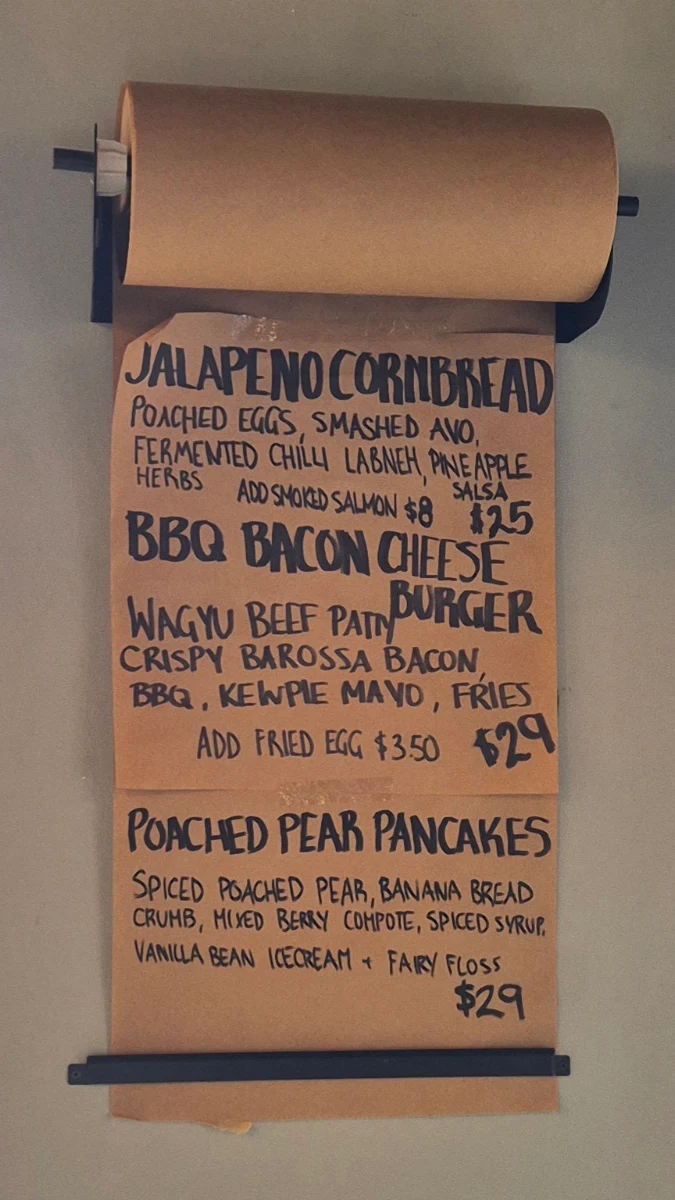 JALAPENO CORNBREAD
POACHED EGGS, SMASHED AVO,
FERMENTED CHILLI LABNEH, PINEAPPLE
HERBS SALSA
ADD SMOKED SALMON $8 $25
BBQ BACON CHEESE
BURGER
WAGYU BEEF PATTY
CRISPY BAROSSA BACON,
BBQ, KEWPIE MAYO, FRIES
ADD FRIED EGG $3.50 $29
POACHED PEAR PANCAKES
SPICED POACHED PEAR, BANANA BREAD
CRUMB, MIXED BERRY COMPOTE, SPICED SYRUP,
VANILLA BEAN ICECREAM + FAIRY FLOSS
$29